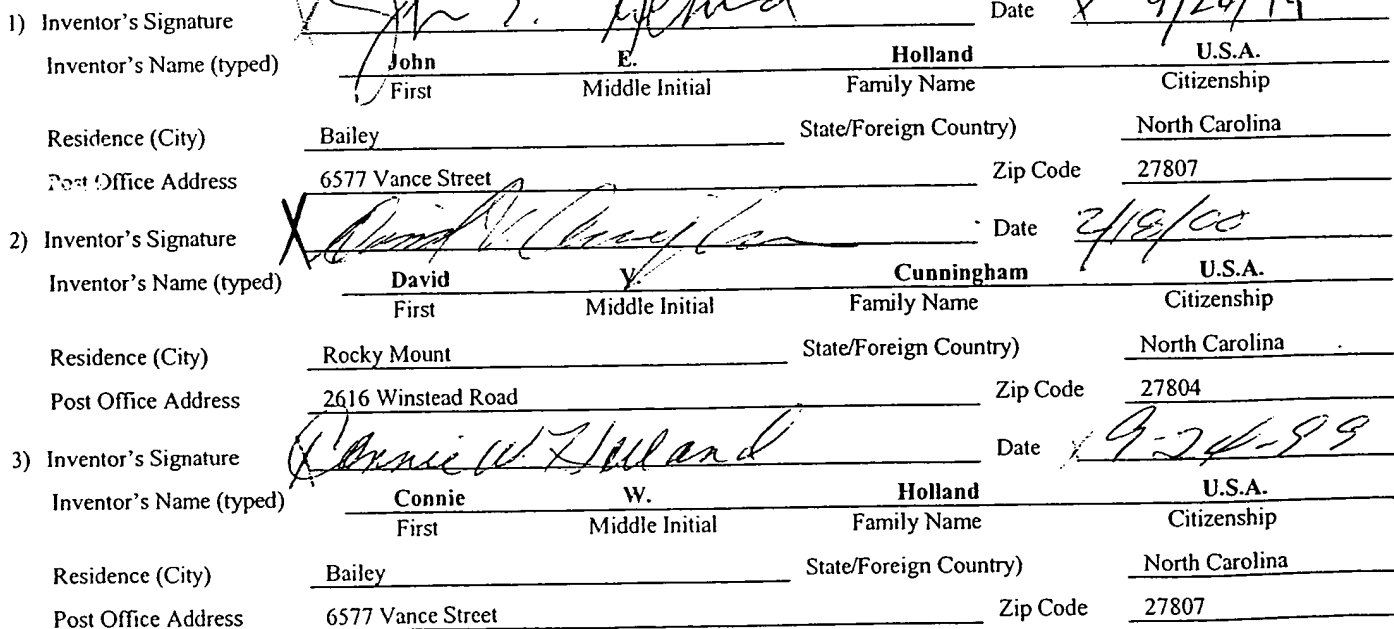 1) Inventor's Signature John E. Holland Date X 9/24/99
Inventor's Name (typed) John E. Holland U.S.A.
First Middle Initial Family Name Citizenship
Residence (City) Bailey State/Foreign Country) North Carolina
Post Office Address 6577 Vance Street Zip Code 27807
2) Inventor's Signature X David V. Cunningham Date 2/18/00
Inventor's Name (typed) David V. Cunningham U.S.A.
First Middle Initial Family Name Citizenship
Residence (City) Rocky Mount State/Foreign Country) North Carolina
Post Office Address 2616 Winstead Road Zip Code 27804
3) Inventor's Signature X Connie W. Holland Date X 9-24-99
Inventor's Name (typed) Connie W. Holland U.S.A.
First Middle Initial Family Name Citizenship
Residence (City) Bailey State/Foreign Country) North Carolina
Post Office Address 6577 Vance Street Zip Code 27807